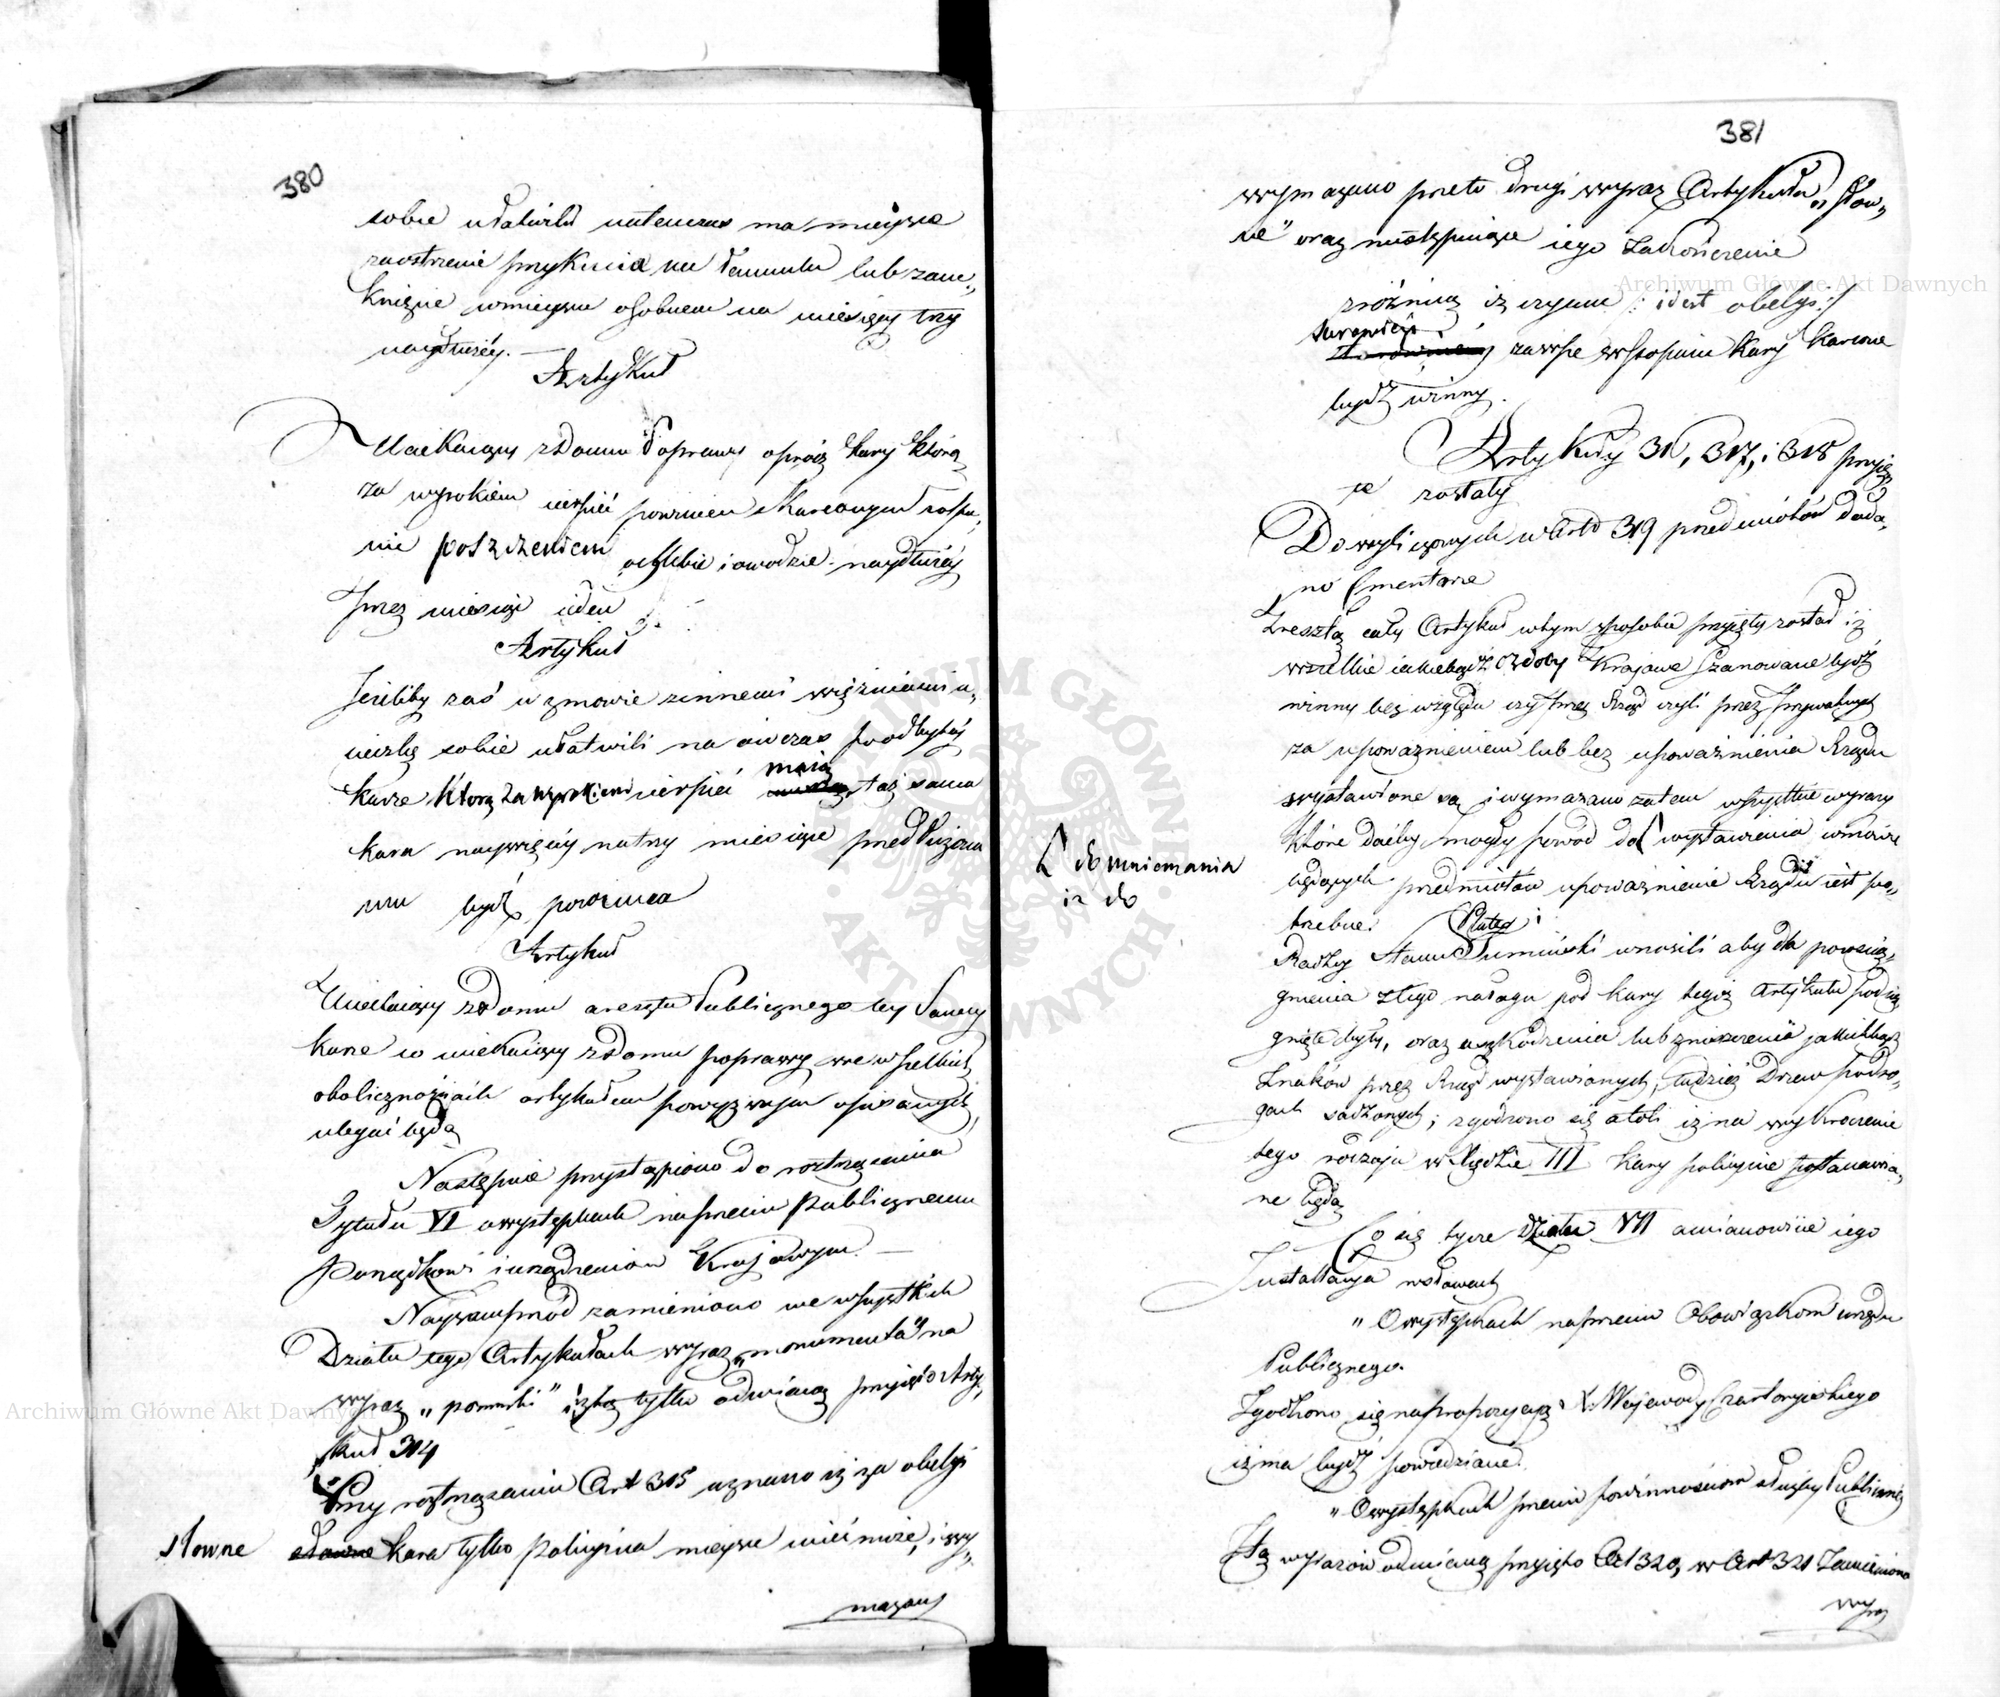 380
sobie ułatwił natenczas ma miejsce
zaostrzenie przykucia na łańcuchu lub zam„
knięcie w miejscu osobnem na miesięcy trzy
naydłużey. —
Artykuł
Uciekaiący z Domu Poprawy oprócz kary którą
za wyrokiem cierpieć powinien skaranym zosta„
nie poszczeniem o chlebie i o wodzie naydłużey
przez miesiąc ieden
Artykuł
Jeżeliby zaś w zmowie z innemi więźniami u„
cieczkę sobie ułatwili na ówczas po odbytey
karze którą za wyrokiem cierpieć maią taż sama
kara naywięcey na trzy miesiące przedłużona
im bydź powinna
Artykuł
Uciekaiący z Domu aresztu Publicznego tey samey
karze co uciekaiący z Domu poprawy we wszelkich
okolicznościach artykułem powyższym opisanych
ulegać będą
Następnie przystąpiono do roztrząsania
Tytułu VI o występkach naprzeciw publicznemu
Porządkowi i urządzeniom Kraiowym. —
Nayprzód zamieniono we wszystkich
Działu tego Artykułach wyraz „monumenta” na
wyraz „pomniki” i z tą tylko odmianą przyięto Arty„
kuł 314
Przy roztrząsaniu Art 315 uznano iż za obelgi
słowne kara tylko policyina mieysce mieć może, i wy„
mazano
381
wymazano przeto drugi wyraz Artykułu „słow„
ne” oraz następuiące iego zakończenie
różnicą iż czynne /: iest obelgi :/
surowiey zawsze w stopniu kary karane
bydź winny.
Artykuły 316, 317, i 318 przyię„
te zostały
Do wyliczonych w Art 319 przedmiotów doda„
no Cmentarze
Zresztą cały Artykuł w tym sposobie przyięty został iż
wszelkie iakiebądź ozdoby Kraiowe szanowane bydź
winny bez względu czy przez Rząd czyli przez prywatnych
za upoważnieniem lub bez upoważnienia Rządu
wystawione są i wymazano zatem wszystkie wyrazy
które daćby mogły powód do wystawienia w mowie
do mniemania
iż do
będących przedmiotów upoważnienie Rządu iest po„
trzebne.
Plater i
Radzcy Stanu Sumiński wnosili aby dla powścią„
gnienia złego nałogu pod kary tegoż Artykułu podcią„
gnięte były, oraz uszkodzenia lub zniszczenia jakichbądź
znaków przez Rząd wystawionych, tudzież Drzew po dro„
gach sadzonych; zgodzono się atoli iż na wykroczenie
tego rodzaju w Xiędze III kary policyine postanawia„
ne będą
Co się tycze Działu VII a mianowicie iego
Installacya w słowach
„O występkach naprzeciw Obowiązkom urzędu
Publicznego.
Zgodzono się na propozycyą X. Wojewody Czartoryskiego
iż ma bydź powiedziane.
„O występkach przeciw powinnościom służby Publiczney
Z tą wyrazów odmianą przyięto Art 320, w Art 321 zamieniono
wyraz